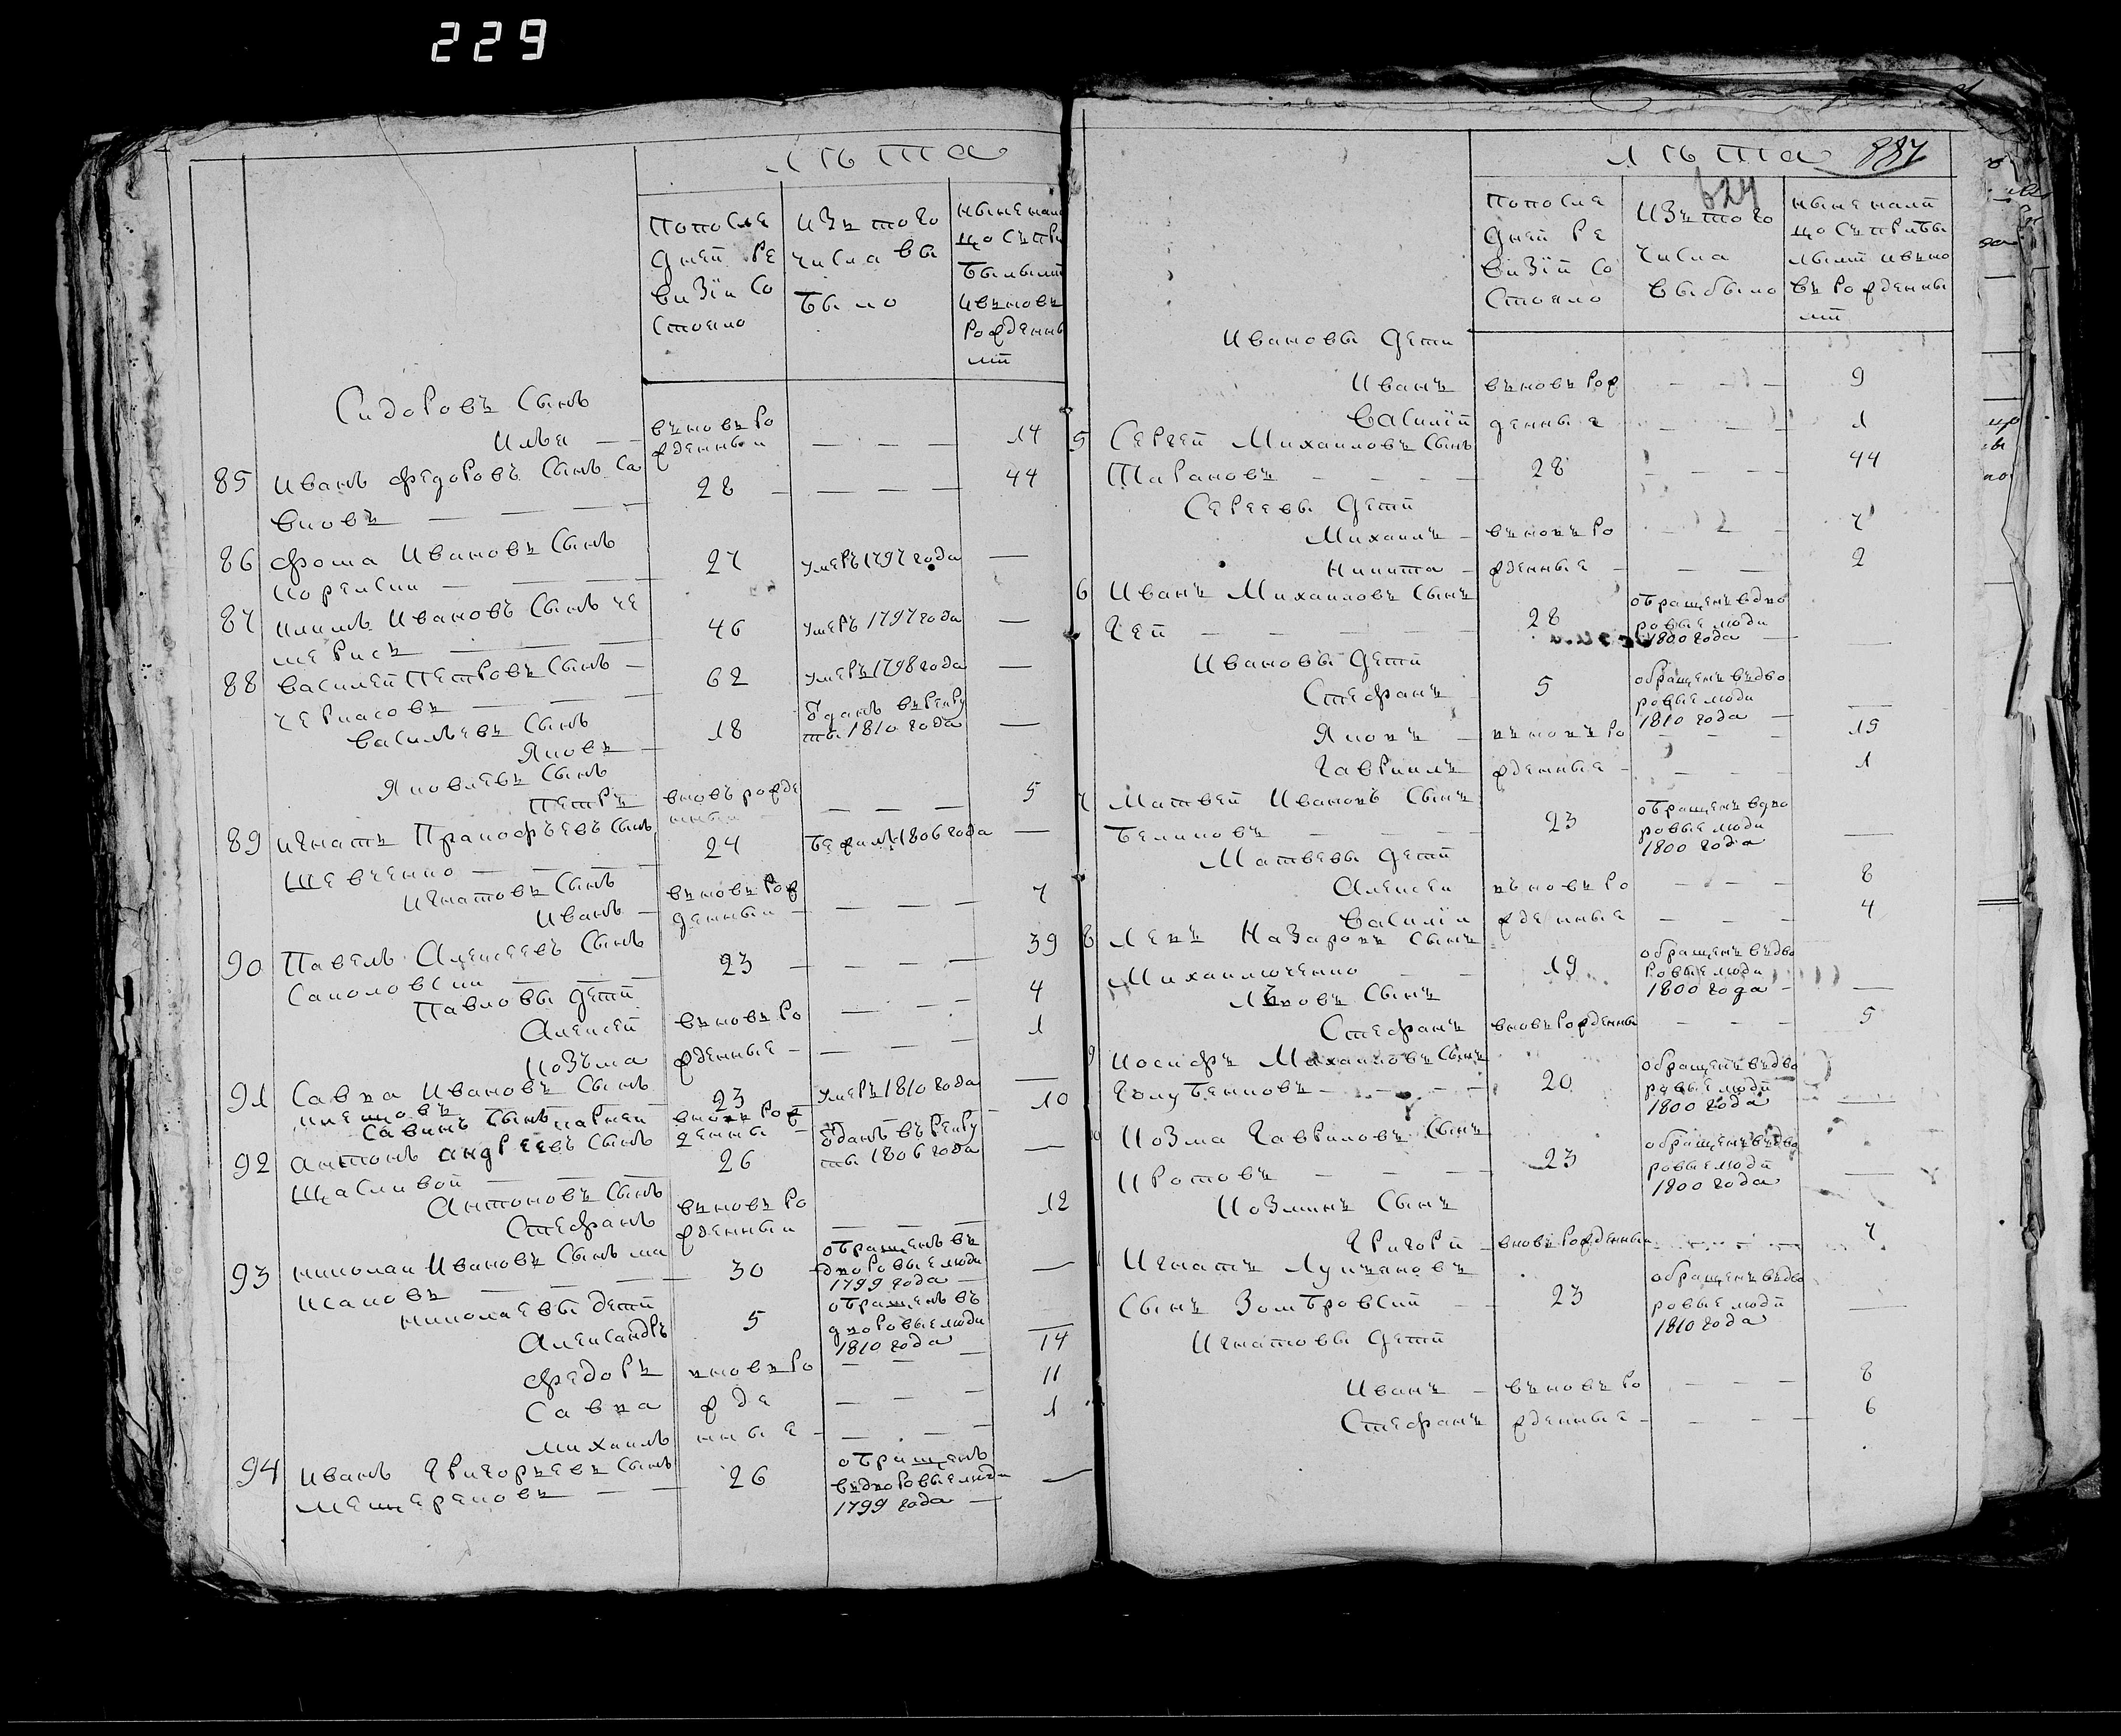 229
лѣта
попосле
дней ре
визiи со
стояло
изъ того
числа вы
было
ныне нали
цо съ при
былыми
ивъновь
рожденны
ми
Сидоровъ Сынъ
Илья — — въновь ро жденный — — — 14
85 Иванъ Федоровъ Сынъ Са
виовъ — — — 28 — — — — 44
86 Фома Ивановъ Сынъ
Корейкин — — — 27 умеръ 1797 года —
87 Климъ Ивановъ Сынъ че
мерисъ — — — 46 умеръ 1797 года —
88 Василей Петровъ Сынъ —
черкасовъ — — 62 умеръ 1798 года —
Васильевъ Сынъ
Яковъ — 18 ѿданъ въ рекру ты 1810 года —
Яковлевъ Сынъ
Петръ вновь рожде нный — — — 5
89 Игнатъ Пракофьевъ Сынъ
Шевченко — — — 24 бежалъ 1806 года —
Игнатовъ Сынъ
Иванъ — въновь рож денный — — — — 7
90 Павелъ Алексеевъ Сынъ
Саколовски — — 23 — — — — 39
Павловы дети
Алексей въновь ро — — — 4
Козьма жденные — — — — 1
91 Савва Ивановъ Сынъ
23 умеръ 1810 года —
Савинъ Сынъ Карней вновь рож денны — 10
92 Антонъ Андреевъ Сынъ
Щасливой — — 26 ѿданъ въ рекру ты 1806 года —
Антоновъ Сынъ
Стефанъ въновь ро жденный — — — 12
93 Николай Ивановъ Сынъ ма
исаковъ — — — 30 обращенъ въ дворовые люди 1799 года — —
Николаевы дети
Александръ 5 обращенъ въ дворовые люди 1810 года —
Федоръ вновь ро — — — 14
Савва жде — — — 11
Михаилъ нные — — — — 1
94 Иванъ Григорьевъ Сынъ
Мещерековъ — — 26 обращенъ въ дворовые люди 1799 года — —
лѣта 887
624
попосле
дней ре
визiй со
стояло
изъ того
числа
выбыло
ныне нали
цо съ прибы
лыми ивъно
въ рожденны
ми
Ивановы дети
Иванъ въновь рож — — — 9
Василiй денные — — — 1
5 Сергей Михаиловъ Сынъ
Шарановъ — — — — 28 — — — 44
Сергеевы дети
Михаилъ — въновь ро — — — 7
Никита — жденные — — — 2
6 Иванъ Михаиловъ Сынъ
Гей — — — — 28 обращенъ въ дво ровые люди 1800 года — —
Ивановы дети
Стефанъ — 5 обращенъ въ дво ровые люди 1810 года — —
Яковъ — въновь ро — — — 15
Гавриилъ жденные — — — 1
7 Матвей Ивановъ Сынъ
Беликовъ — — — 23 обращенъ въ дво ровые люди 1800 года —
Матвевы дети
Алексей въновь ро — — — 8
Василiй жденные — — — 4
8 Левъ Назаровъ Сынъ
Михаилюченко — — 19 обращенъ въ дво ровые люди 1800 года — —
Львовъ Сынъ
Стефанъ вновь рожденны — — — 5
9 Иосифъ Михаиловъ Сынъ
Голубенковъ — — — — 20 обращенъ въ дво ровые люди 1800 года —
10 Козма Гавриловъ Сынъ
Кротовъ — — — 23 обращенъ въ дво ровые люди 1800 года —
Козминъ Сынъ
Григорй — вновь рожденный — — — 7
1 Игнатъ Лукъяновъ
Сынъ Зомбровский — 23 обращенъ въ дво ровые люди 1810 года —
Игнатовы дети
Иванъ — въновь ро — — — 8
Стефанъ жденные — — — — 6